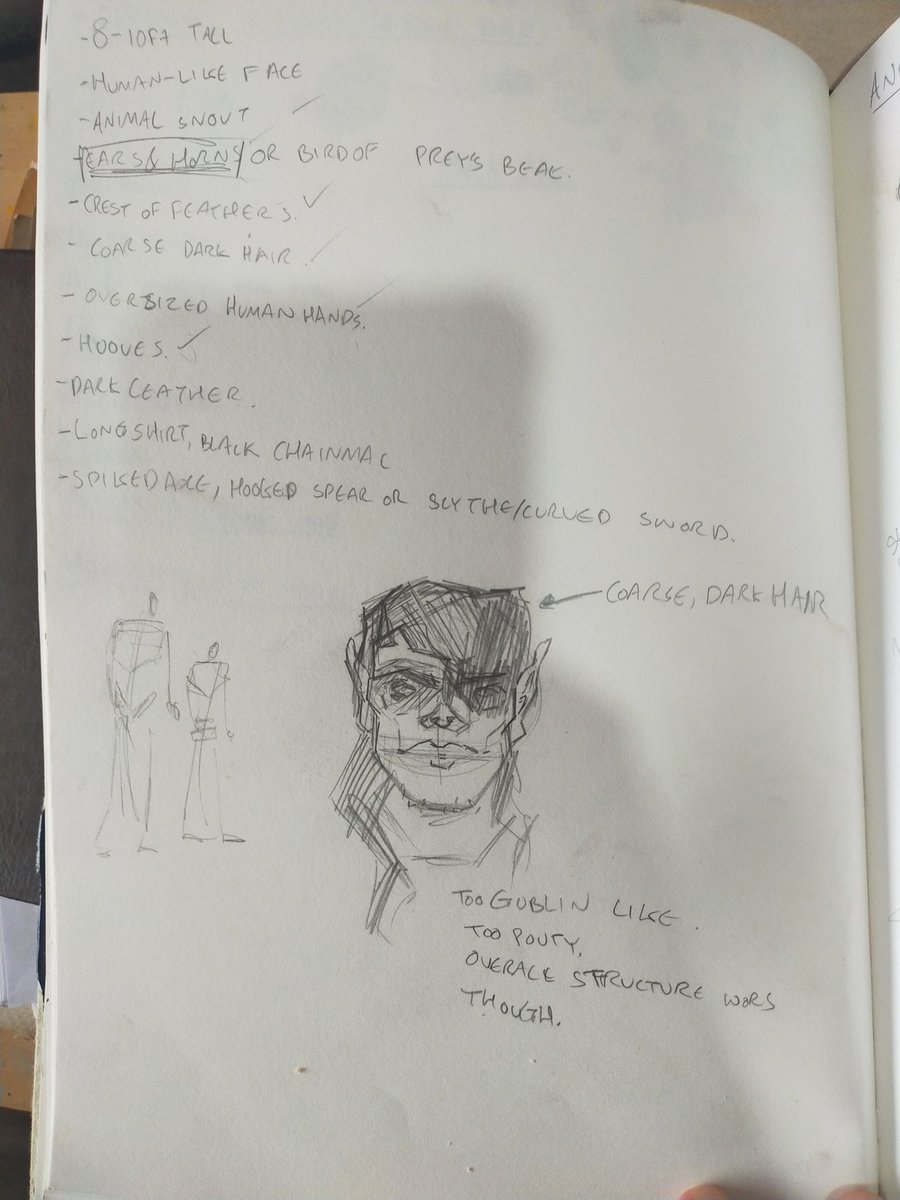 -8-10FT TALL
-HUMAN-LIKE FACE
-ANIMAL SNOUT
EARS & HORNS OR BIRD OF PREY'S BEAK.
-CREST OF FEATHERS.
- COARSE DARK HAIR
- OVERSIZED HUMAN HANDS.
-HOOVES.
-DARK LEATHER.
-LONGSHIRT, BLACK CHAINMAIL
-SPIKED AXE, HOOKED SPEAR OR SCYTHE/CURVED SWORD.
COARSE, DARK HAIR
TOO GOBLIN LIKE.
TOO POUTY,
OVERALL STRUCTURE WORS
THOUGH.
AN